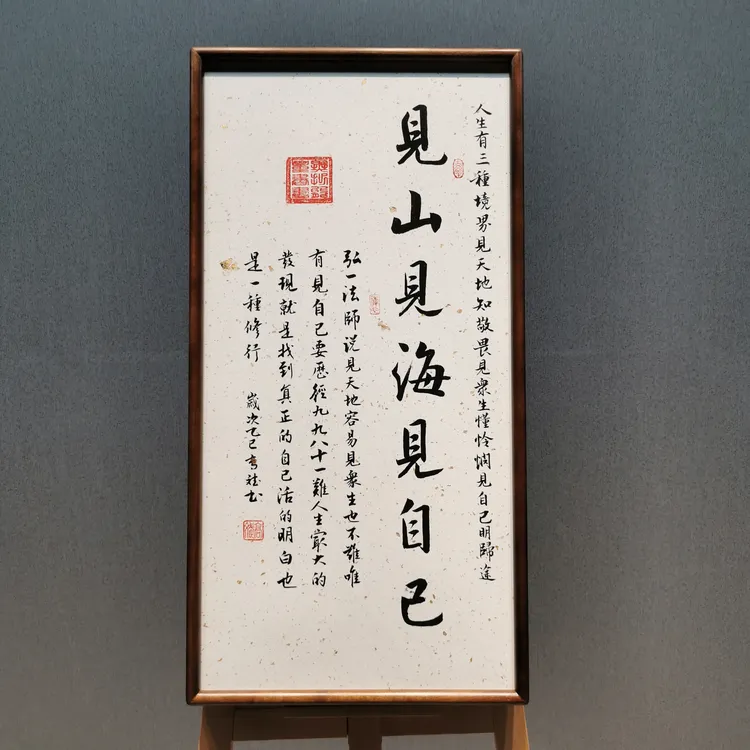 人生有三種境界見天地知敬畏見衆生懂怜憫見自己明歸途
見山見海見自己
弘一法師说見天地容易見衆生也不難唯
有見自己要歷經九九八十一難人生最大的
發現就是找到真正的自己活的明白也
是一種修行
歲次乙巳
书